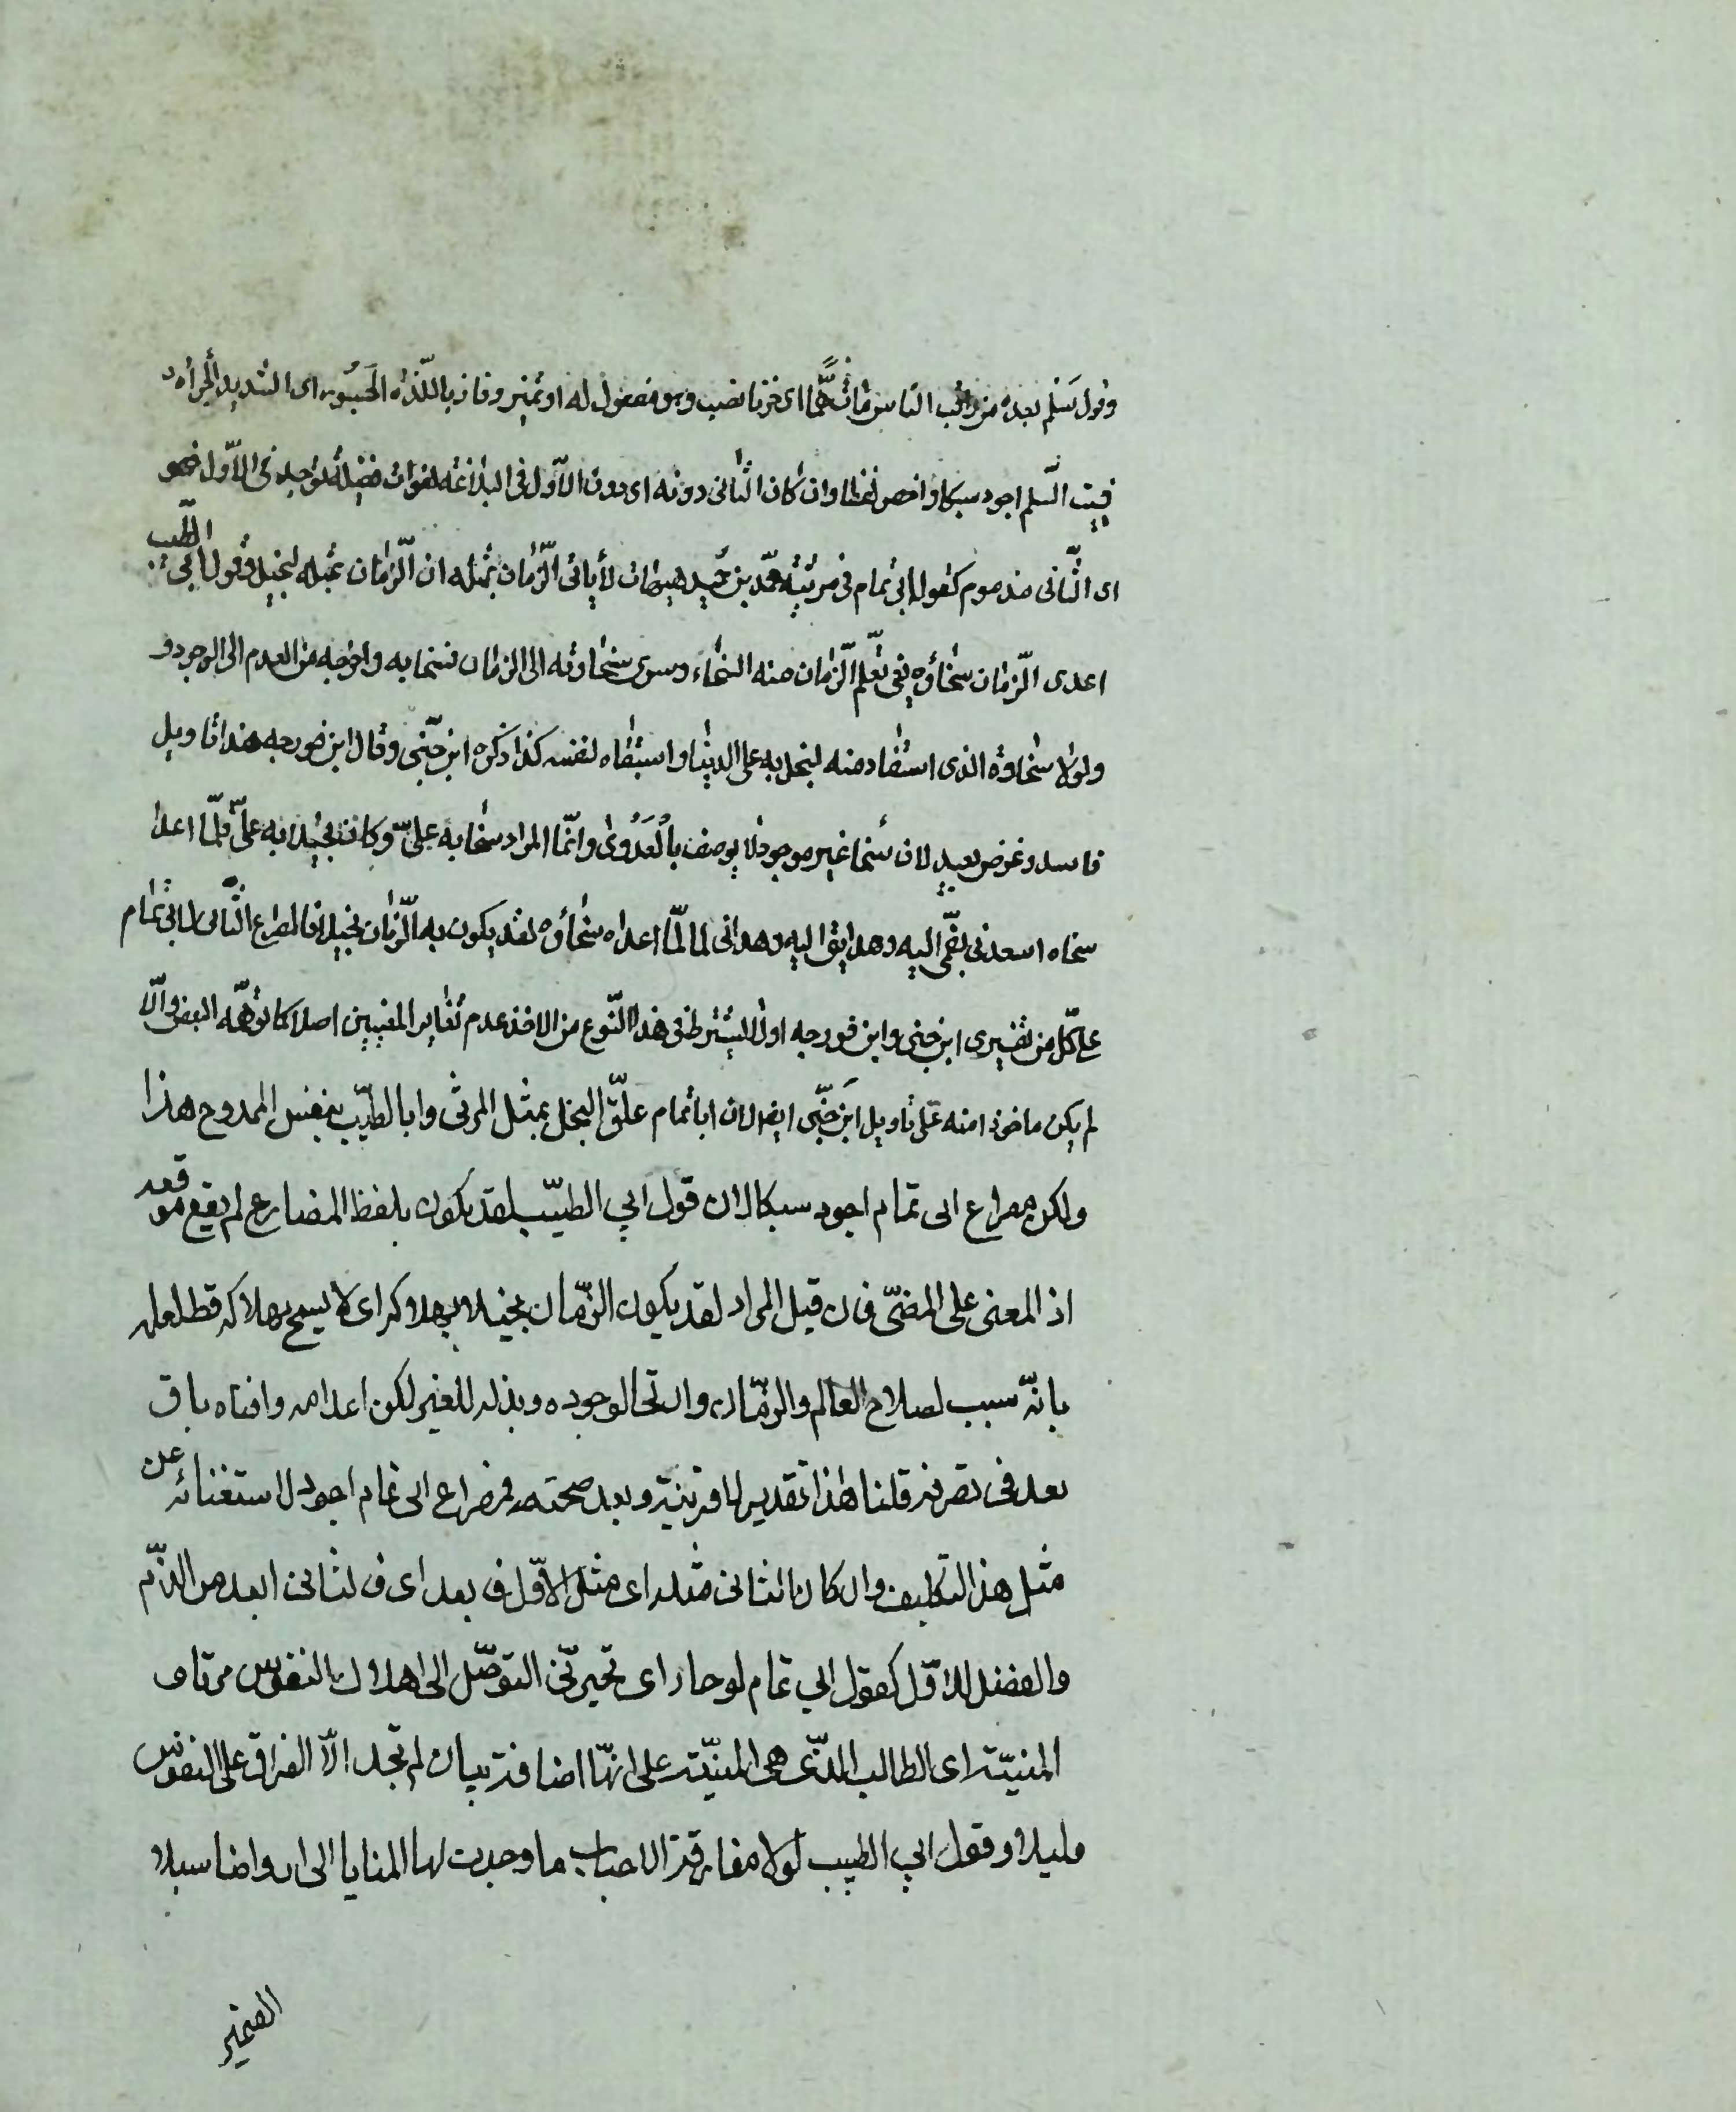 وقول سَلم بعده من راقب الناس مات غمًّا اى حزنا نصب وهو مفعول له او تميز وفاز باللّذة الجَسُور اى الشديد الجرأة
فبيت السّلم اجود سبكا واخصر لفظا وان كان الثانى دونه اى دون الاوّل فى البلاغة لفوات فضيلة توجد فى الاوّل فهو
اى الثّانى مذموم كقول ابى تمام فى مرثية محمّد بن حميد هيهات لا يأتى الزّمان بمثله ان الزّمان بمثله لبخيل وقول ابى الطّيب
اعدى الزّمان سخاؤه يعنى تعلّم الزّمان منه السّخاء وسرى سخاوته الى الزمان فسخا به واخرجه من العدم الى الوجود و
ولولا سخاؤه الذى استفاد منه لبخل به على الدنيا واستبقاه لنفسه كذا ذكره ابن جنّى وقال ابن فورجه هذا تاويل
فاسد وغرض بعيد لان سخا غير موجود لا يوصف بالعَدْوى وانّما المراد سخا به علىّ وكان بخيلا به علىّ فلمّا اعداه
سخاه اسعدنى بضمّى اليه وهدايتى اليه وهدانى لما لمّا اعداه سخاؤه لقد يكون به الزّمان بخيلا فالمصراع الثّانى لابى تمام
على كلّ من تفسيرى ابن جنى وابن فورجه اولا ليشترط فى هذا النّوع من الاخذ عدم تغاير المعنيين اصلا كما توهّمه البعض والّا
لم يكن ماخوذا منه على تاويل ابن جنّى ايضا لان ابا تمام علّق البخل بمثل المرثى وابا الطيّب بنفس الممدوح هذا
ولكن مصراع ابى تمام اجود سبكا لان قول ابى الطيّب لقد يكون بلفظ المضارع لم يقع موقعه
اذ المعنى على المضىّ فان قيل المراد لقد يكون الزّمان بخيلا بهلاكه اى لا يسمح بهلاكه قط لعلمه
بانّه سبب لصلاح العالم والزمان وان سخا لوجوده وبذله للغير لكن اعدامه وافناه باق
بعد فى تصرفه قلنا هذا تقدير لا قرينة وبعد صحته فمصراع ابى تمام اجود لاستغنائه عن
مثل هذا التكليف وان كان الثانى مثله اى مثل الاوّل فابعد اى فالثانى ابعد من الذّم
والفضل للاوّل كقول ابي تمام لو حار اى تحير فى التوصّل الى اهلاك النفوس مرتاد
المنيّة اى الطالب الذى هى المنيّة على انها اضافة بيان لم تجد الّا الفراق على النفوس
دليلا وقول ابي الطيب لولا مفارقة الاحباب ما وجدت لها المنايا الى ارواحنا سبلا
الضمير